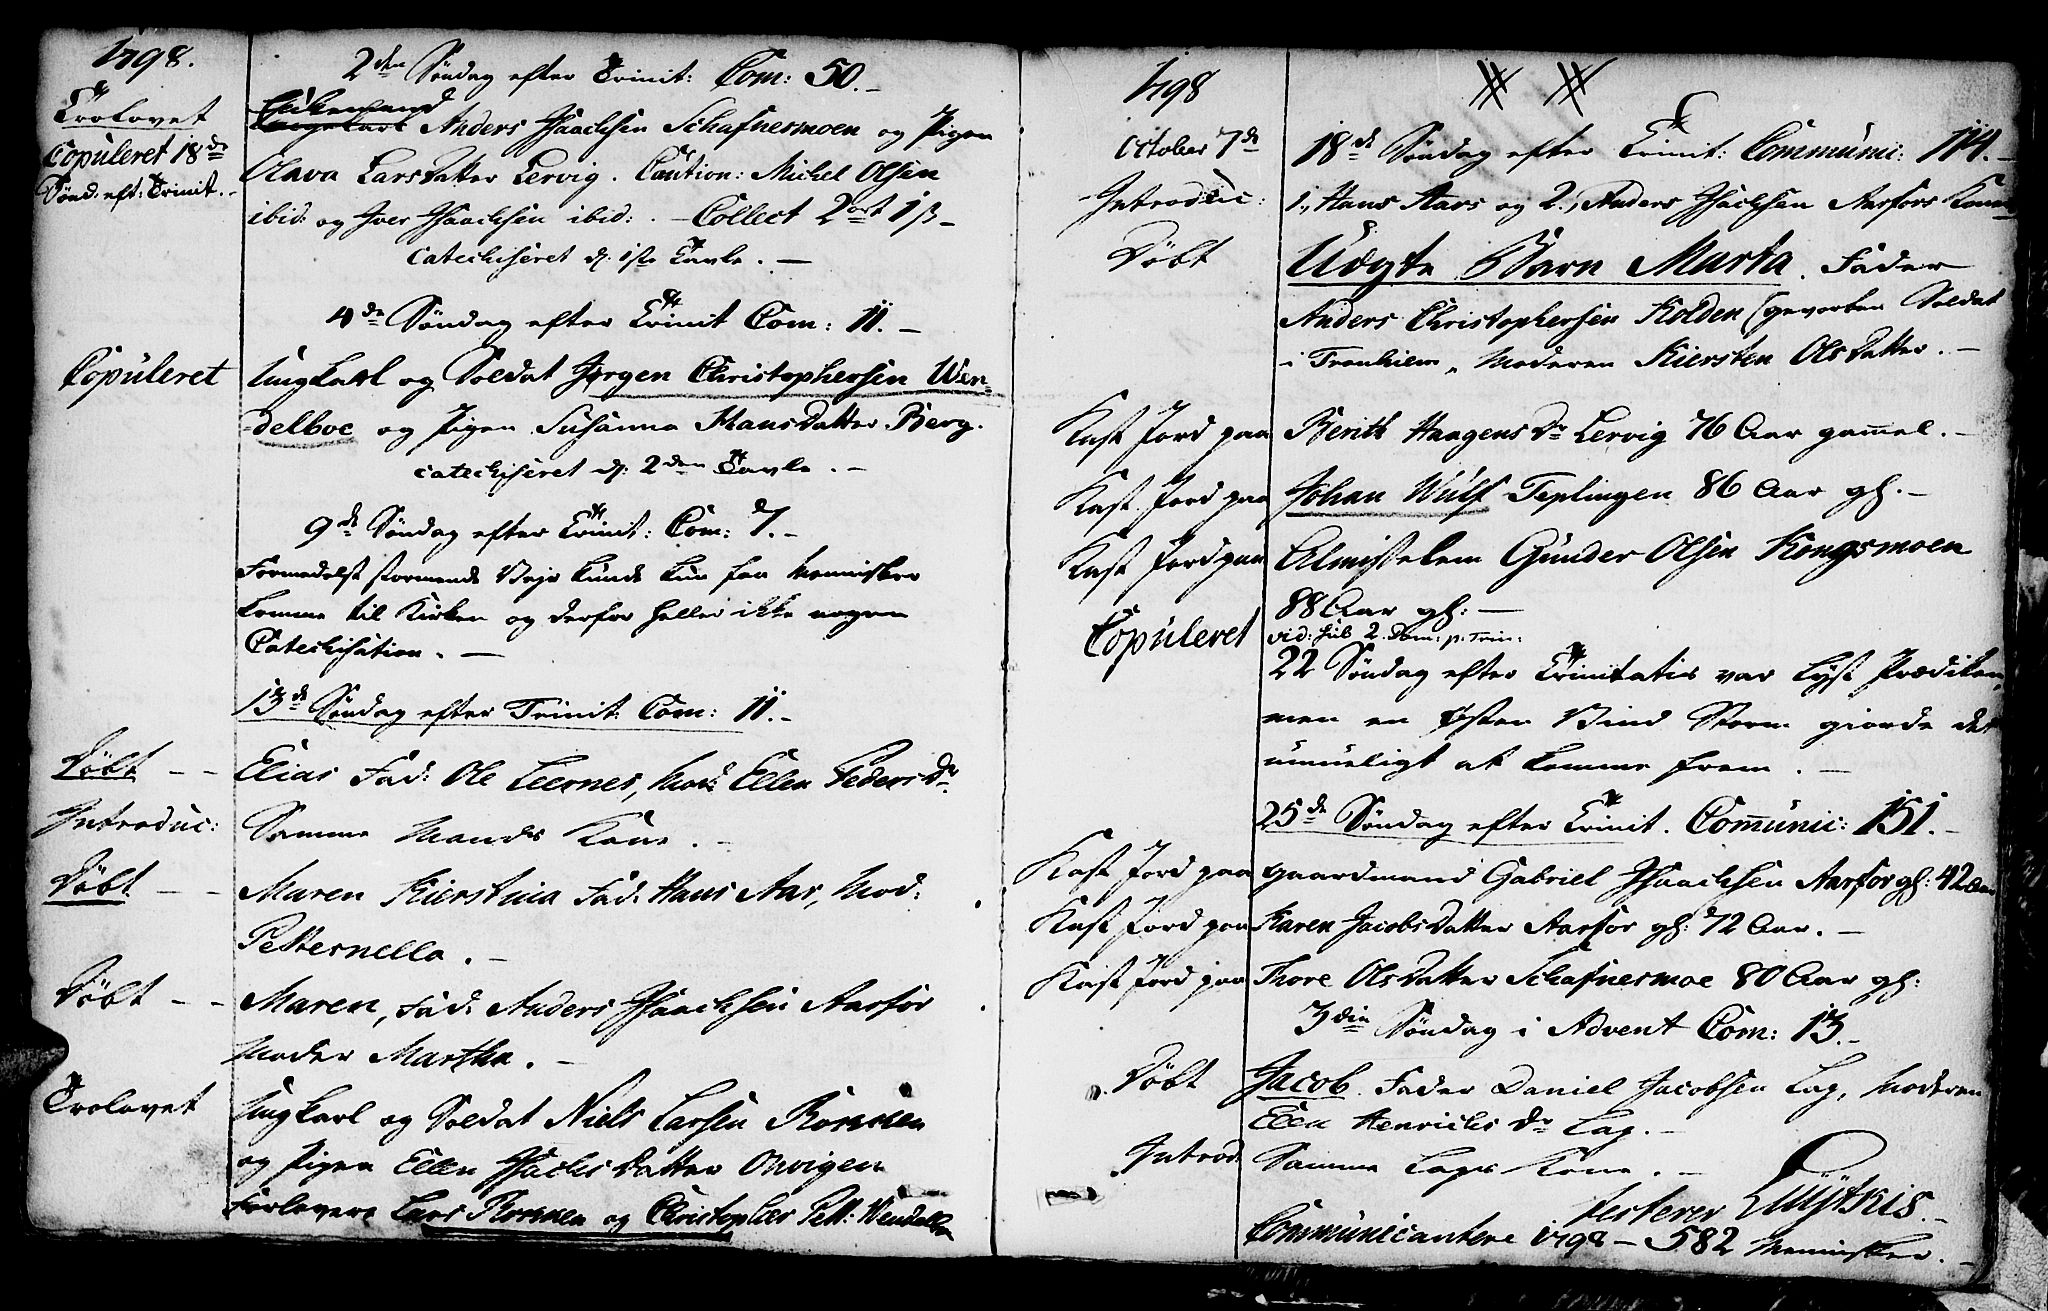 1798.
2den Søndag efter Trinit: Com: 50.-
Trolovet
Enkemand
Ungekarl Anders Isaachsen Schafnesmoen og Pigen
Copuleret 18de
Sønd: eft: Trinit.-
Olava LarsDatter Lervig. Caution: Michel Olsen
ibid: og Iver Isaachsen ibid: . - Collect 2ort 1ß-
catechiseret d: 1ste Tavle. -
4de Søndag efter Trinit Com: 11.-
Copuleret
Ungkarl og Soldat Jørgen Christophersen Wen-
delboe og Pigen Susanna HansDatter Berg.
catechiseret d: 2den Tavle. -
9de Søndag efter Trinit: Com: 7.-
Formedelst stormende Vejr kunde kun faa Mennisker
komme til Kirken og derfor heller ikke nogen
Catechisation. -
13de Søndag efter Trinit: Com: 11.-
Døbt - - Elias Fad: Ole Leernes, Mod: Ellen PedersDr
Introduc: Samme Mands Kone. -
Døbt - - Maren Kierstina Fad: Hans Aar, Mod:
Petternella. -
Døbt - - Maren, Fad: Anders Isaachsen Aarfor
Moder Martha. -
Trolovet
Ungkarl og Soldat Niels Larsen Ronnen
og Pigen Ellen IsachsDatter Opvigen
Forlovere Lars Ronnen og Christopher Pett: Wendelbo
1798
October 7de
18de Søndag efter Trinit: Communi: 114.-
Introduc: 1, Hans Aars og 2, Anders Isachsen Aarfors Kone
Døbt
Uægte Barn Marta. Fader
Anders Christophersen Kolden (gevorben Soldat
i Tronhiem, Moderen Kiersten OlsDatter. -
Kast Jord paa Berith HaagensDr Lervig 76 Aar gammel. -
Kast Jord paa Johan Wulf Teplingen 86 Aar gl. -
Kast Jord paa Almisselem Gunder Olsen Kongsmoen
88 Aar gl: -
Copuleret vid: sub 2. Dom: p. Trin:
22 Søndag efter Trinitatis var lyst Prædiken,
men en Østen Vind Storm giorde det
umueligt at komme frem. -
25de Søndag efter Trinit. Communic: 151.-
Kast Jord paa gaardmand Gabriel Isaachsen Aarfor gl: 42 Aar
Kast Jord paa Karen JacobsDatter Aarfor gl: 72 Aar. -
Kast Jord paa Thore OlsDatter Schafnesmoe 80 Aar gl:
3die Søndag i Advent Com: 13.-
Døbt Jacob. Fader Daniel Jacobsen Lag, Moderen
Ellen HenrichsDr Lag. -
Introd. Samme Lags Kone. -
testerer
Communicantere 1798 - 582 Mennisker. -